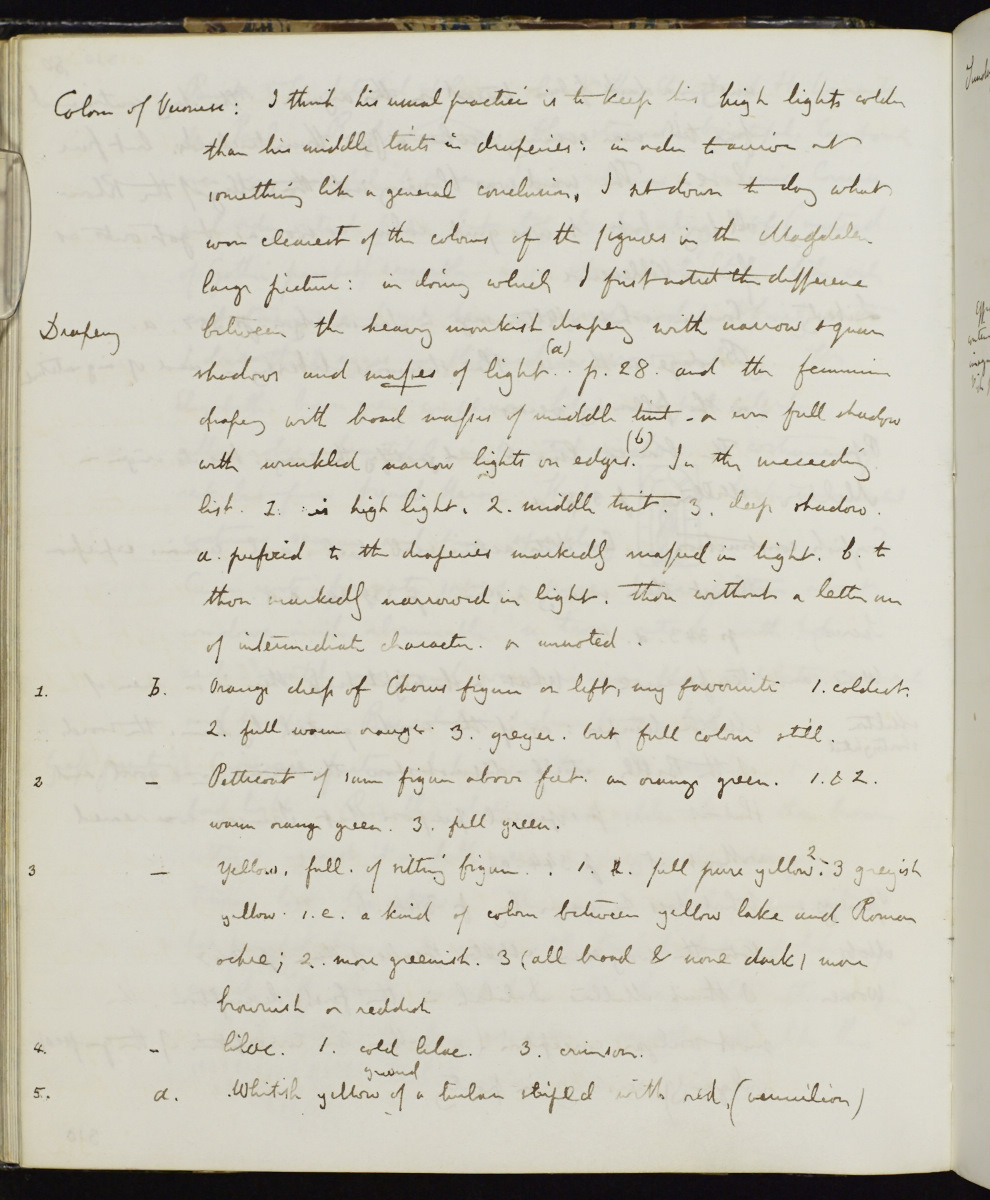 Colour of Veronese: I think his usual practice is to keep his high lights colder
than his middle tints in draperies: in order to arrive at
something like a general conclusion, I set down to day what
were clearest of the colours of the figures in the Magdalen
large picture: in doing which I first noted the difference
Drapery between the heavy monkish drapery with narrow square
shadows and masses of light (a) p. 28. and the feminine
drapery with broad masses of middle tint - or even full shadow
with wrinkled narrow lights on edges. (b) In the succeeding
list. 1. is high light. 2. middle tint. 3. deep shadow.
a. prefixed to the draperies markedly massed in light. b. to
those markedly narrowed in light. Those without a letter are
of intermediate character. or unnoted.
1. b. Orange dress of Chorus figure on left, my favourite 1. coldest.
2. full warm orange. 3. greyer. but full colour still.
2 - Petticoat of same figure above feet. an orange green. 1. & 2.
warm orange green. 3. full green.
3 - Yellow, full. of sitting figure. 1. full pure yellow. 2. 3 greyish
yellow. i.e. a kind of colour between yellow lake and Roman
ochre; 2. more greenish. 3 (all broad & none dark) more
brownish or reddish
4. - Lilac. 1. cold lilac. 3. crimson.
5. a. Whitish yellow ground of a turban striped with red, (vermilion)